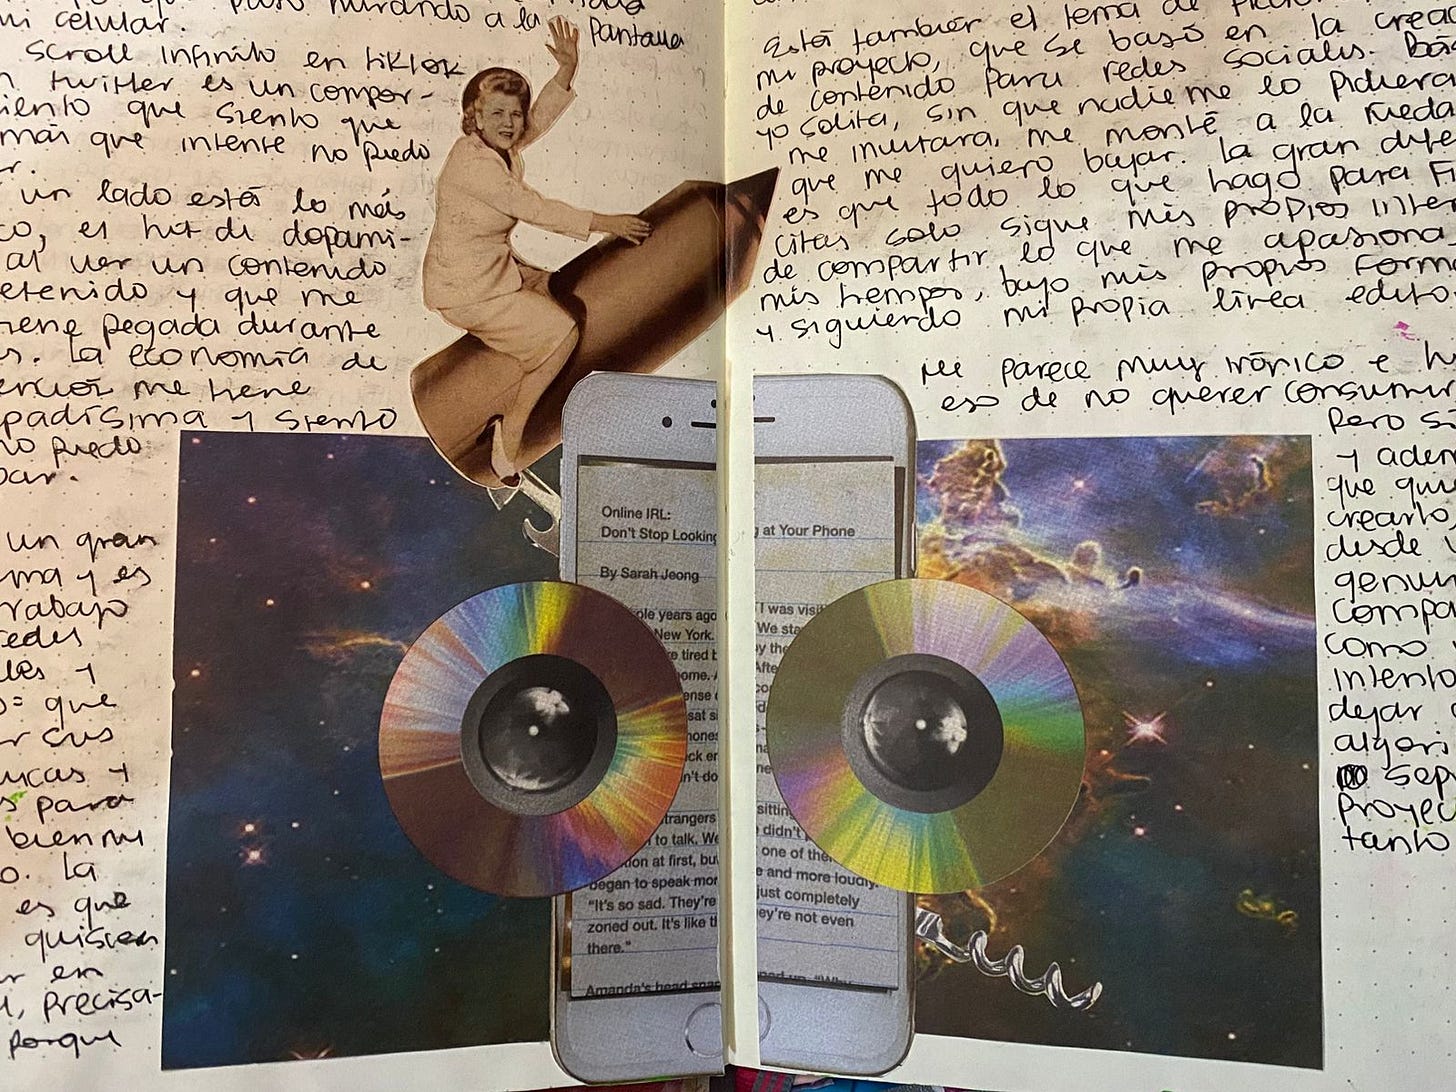 que paso mirando a la pantalla
mi celular.
scroll infinito en tiktok
twitter es un compor-
miento que siento que
más que intente no puedo
un lado está lo más
es hot di dopami-
al ver un contenido
etenido y que me
tiene pegada durante
s. La economía de
me tiene
padísima y siento
no puedo
par.
un gran
ma y es
rabajo
redes
les y
que
r sus
ucas y
s para
bien mi
o. La
es que
quisiera
r en
, precisa-
porque
Está también el tema de
mi proyecto, que se basó en la crea
de contenido para redes sociales.
yo solita, sin que nadie me lo pidiera
me invitara, me monté a la rueda
que me quiero bajar. La gran dife
es que todo lo que hago para Fi
citas solo sigue mis propios inter
de compartir lo que me apasiona
mis tiempos, bajo mis propios forma
y siguiendo mi propia línea edito
Me parece muy irónico e h
eso de no querer consumir
Pero si
y adem
que qui
crearlo
desde
genui
compa
como
intento
dejar
algori
sep
proyec
tanto
Online IRL:
Don't Stop Looking at Your Phone
By Sarah Jeong
ple years ago I was visi
New York. We sta
re tired b y the
ome. After
ense
sat s
hones
ck en
n't do
trangers sitting
to talk. We didn't
ion at first, but one of the
began to speak more and more loudly.
"It's so sad. They're just completely
zoned out. It's like they're not even
there."
Amanda's head snapped up. "Why